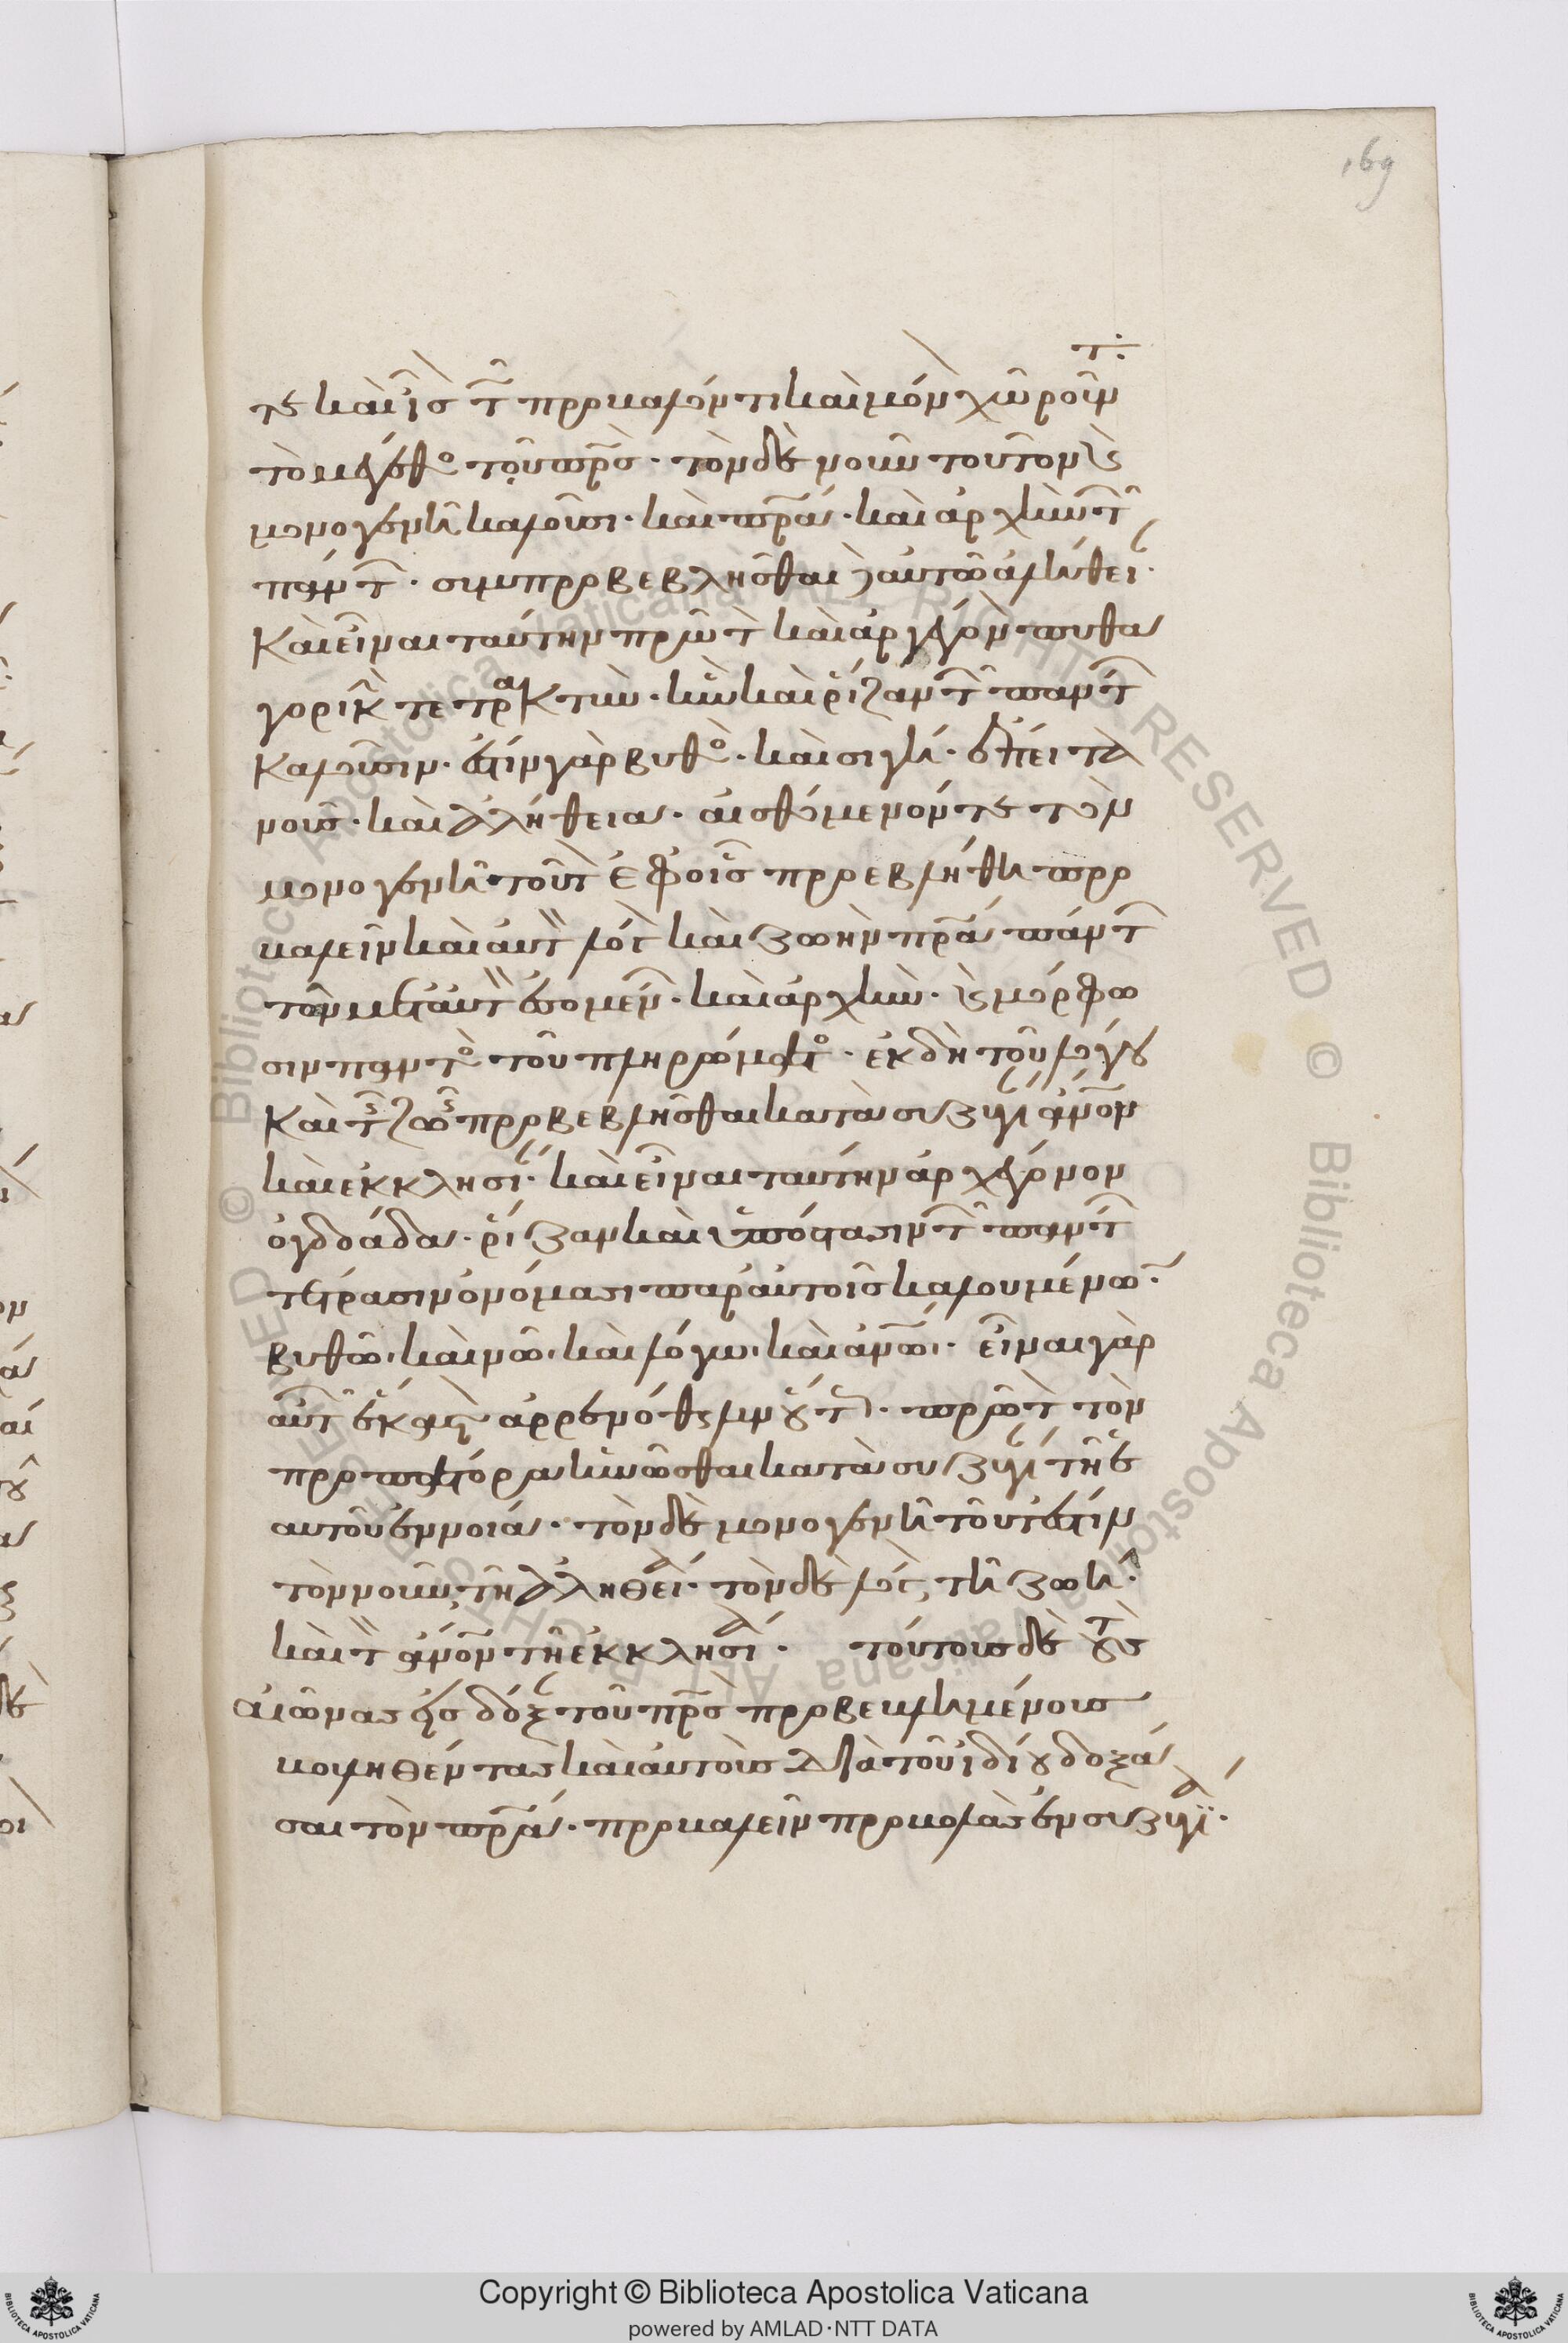 169
τε καὶ ἴσον τῷ προβαλόντι καὶ μόνον χωροῦντα
τὸ μέγεθος τοῦ πρς. τὸν δὲ νοῦν τοῦτον καὶ
μονογενῆ καλοῦσι. καὶ πρα. καὶ ἀρχὴν τῶν
πάντων. συμπροβεβλῆσθαι δὲ αὐτῷ ἀλήθειαν.
Καὶ εἶναι ταύτην πρώτην καὶ ἀρχέγονον πυθα
γορικὴν τετρακτὺν. ἣν καὶ ῥίζαν τῶν πάντων
καλοῦσιν. ἔστιν γὰρ βυθὸς. καὶ σιγή. ἔπειτα
νοῦς. καὶ ἀλήθεια. αἰσθόμενόν τε τὸν
μονογενῆ τοῦτον ἐφ' οἷς προεβλήθη προ
βαλεῖν καὶ αὐτὸν λόγον καὶ ζωὴν πρα πάντων
τῶν μετ' αὐτὸν ἐσομένων. καὶ ἀρχὴν. καὶ μόρφω
σιν παντὸς τοῦ πληρώματος. ἐκ δὴ τοῦ λόγου
Καὶ τῆς ζωῆς προβεβλῆσθαι κατὰ συζυγίαν ἄνον
καὶ ἐκκλησίαν. καὶ εἶναι ταύτην ἀρχέγονον
ὀγδοάδα. ῥίζαν καὶ ὑπόστασιν τῶν πάντων
τέτρασιν ὀνόμασι παρ' αὐτοῖς καλουμένων.
βυθῷ. καὶ νῷ. καὶ λόγῳ. καὶ ἀνῳ. εἶναι γὰρ
αὐτῶν ἕκαστον ἀρρενόθηλυν οὕτως. πρῶτον τὸν
προπάτορα ἡνῶσθαι κατὰ συζυγίαν τῇ ἑ
αυτοῦ ἐννοίᾳ. τὸν δὲ μονογενῆ τοῦτ' ἔστιν
τὸν νοῦν, τῇ ἀληθείᾳ. τὸν δὲ λόγον, τῇ ζωῇ.
καὶ τὸν ἄνον τῇ ἐκκλησίᾳ. τούτους δὲ τοὺς
αἰῶνας εἰς δόξαν τοῦ πρς προβεβλημένους
βουληθέντας καὶ αὐτοὺς διὰ τοῦ ἰδίου δοξά
σαι τὸν πρα. προβαλεῖν προβολὰς ἐν συζυγίᾳ.
Copyright © Biblioteca Apostolica Vaticana
powered by AMLAD·NTT DATA